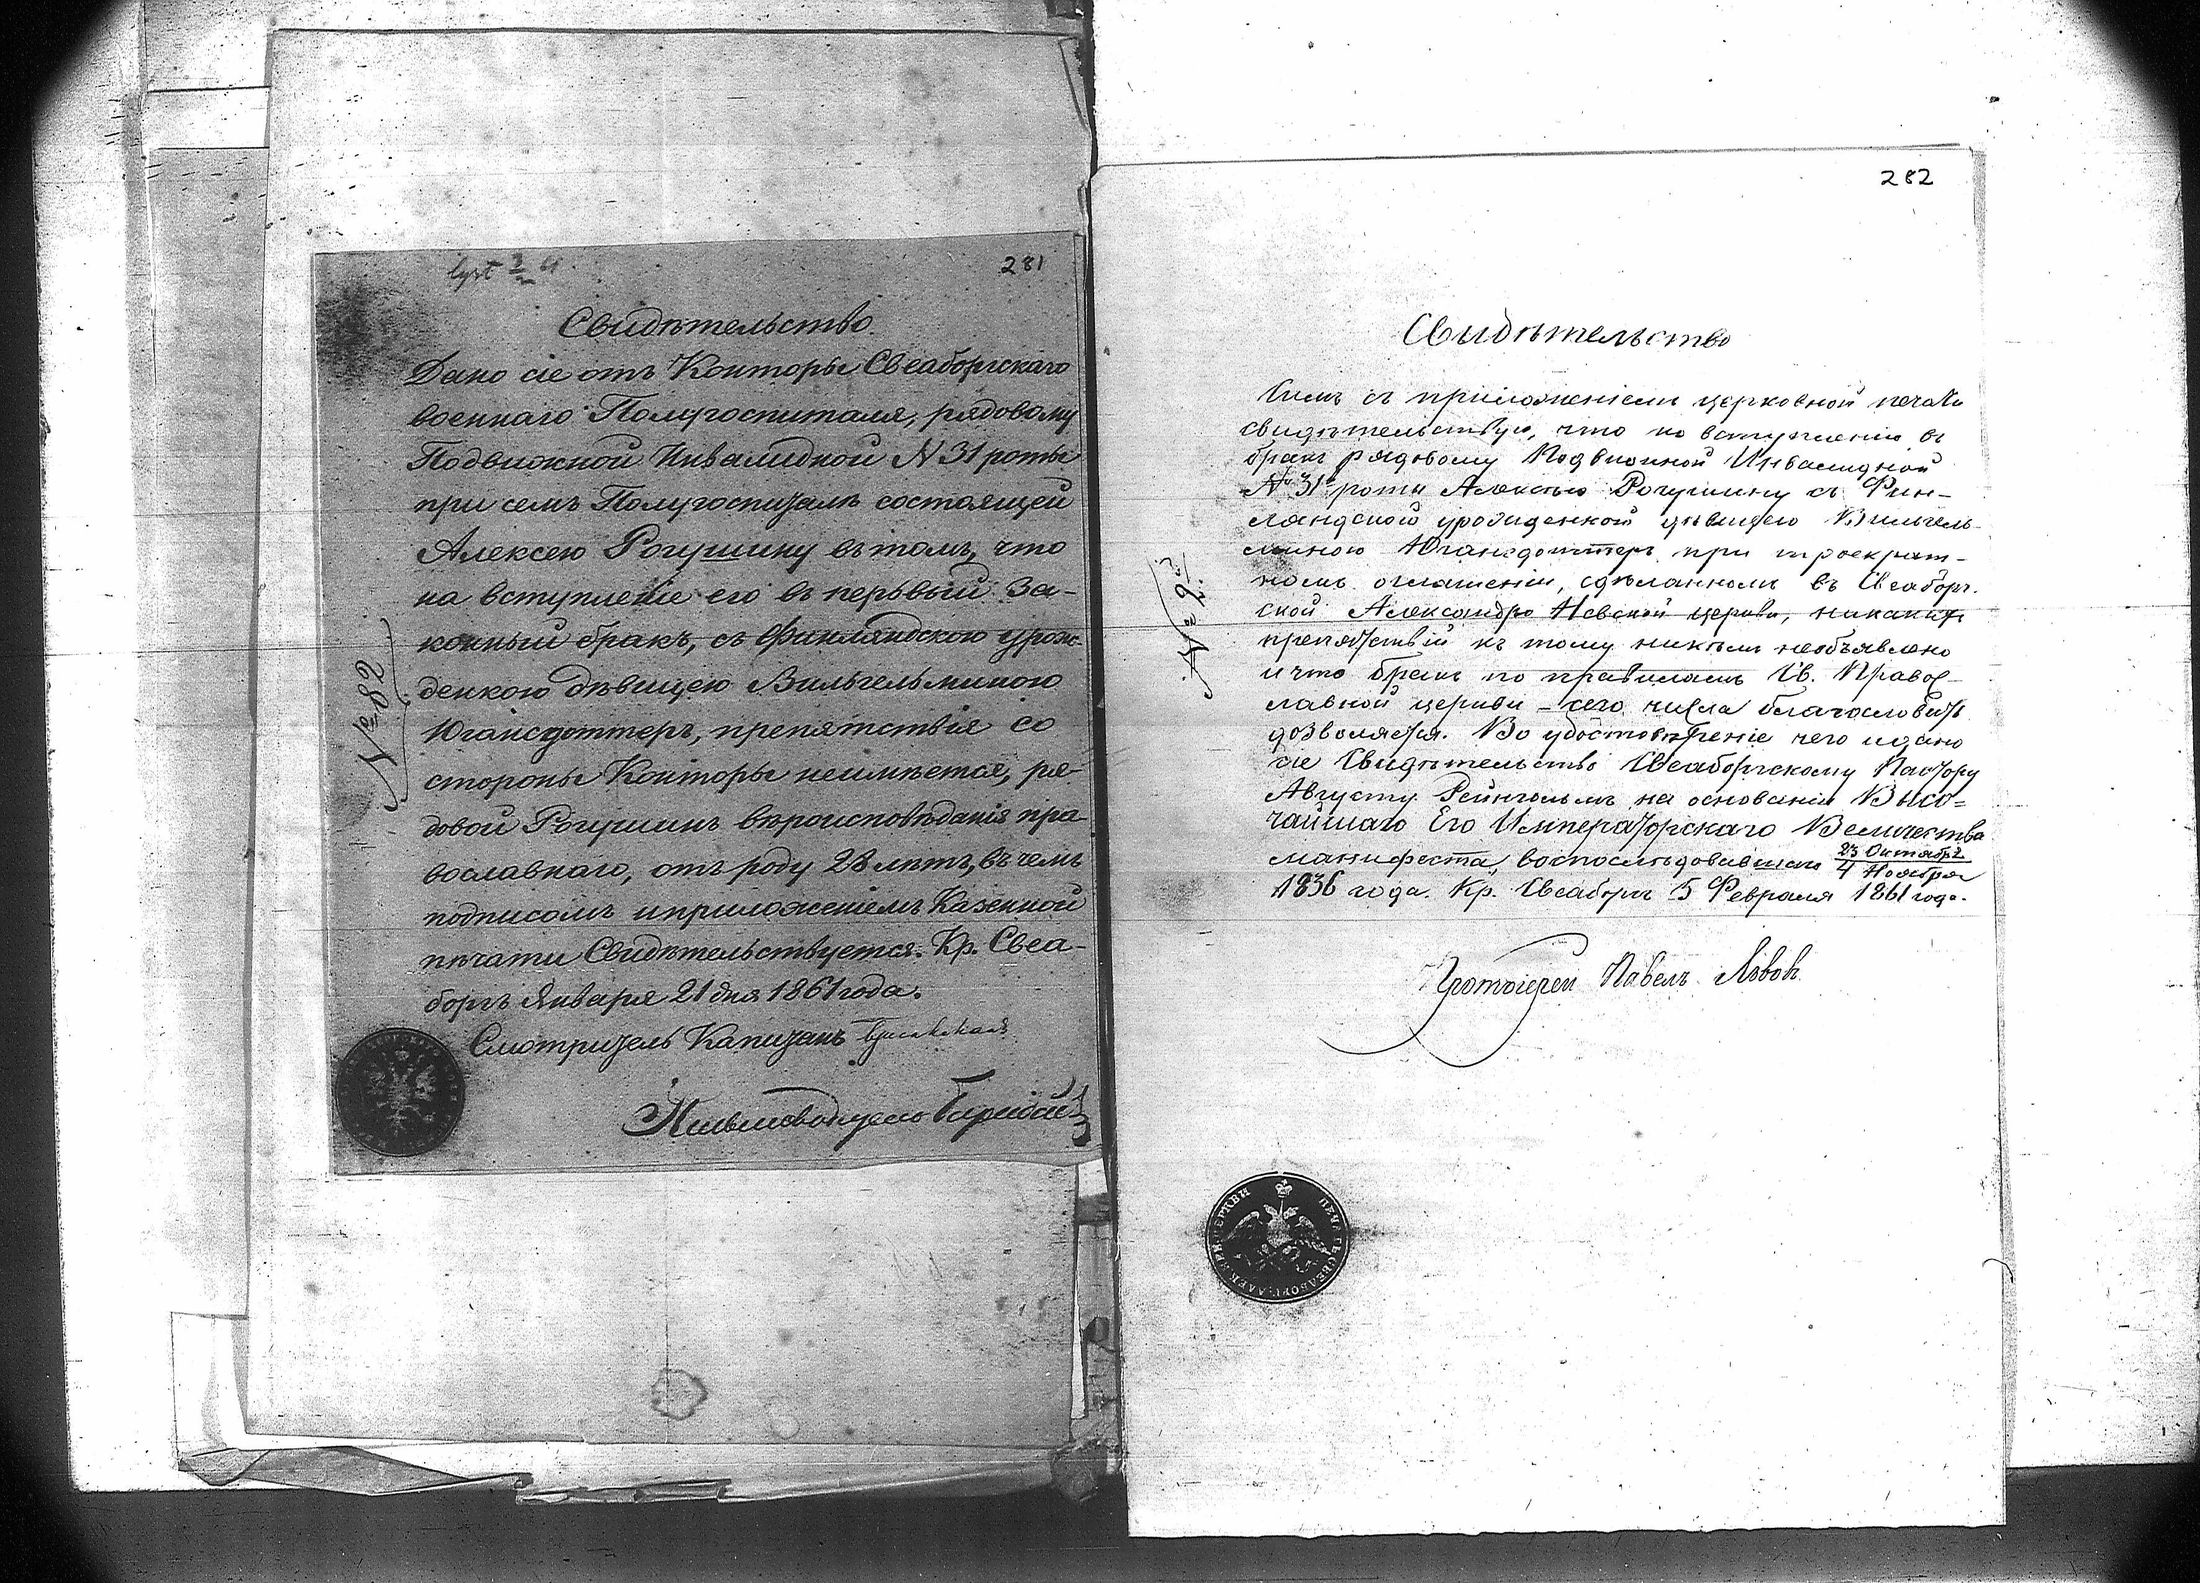 lyst 3/2 61
281
Свидѣтельство.
Дано сіе отъ Конторы Свеаборгскаго
военнаго Полугоспиталя, рядовому
Подвижной Инвалидной N 31 роты
при семъ Полугоспиталѣ состоящей
Алексею Рогушину въ томъ, что
на вступленіе его въ первый за-
конный бракъ, съ Финляндскою урож-
денкою дѣвицею Вильгельминою
Югансдоттеръ, препятствія со
стороны Конторы неимѣется, ря-
довой Рогушинъ вѣроисповѣданія пра-
вославнаго, отъ роду 28 лѣтъ, въ чемъ
подписомъ и приложеніемъ Казенной
печати Свидѣтельствуется. Кр. Свеа-
боргъ Января 21 дня 1861 года.
Смотритель Капитанъ
№ 82
282
Свидѣтельство
Симъ съ приложеніемъ церковной печати
свидѣтельствую, что по вступленію въ
бракъ рядовому Подвижной Инвалидной
№ 31й роты Алексѣю Рогушину съ Фин-
ляндской урожденкой дѣвицею Вильгель-
миною Югансдоттеръ при троекрат-
номъ оглашеніи, сдѣланномъ въ Свеаборг-
ской Александро Невской церкви, никакихъ
препятствій къ тому никѣмъ необъявлено
и что бракъ по правиламъ Св. Право-
славной церкви – сего числа благословить
дозволяется. Во удостовѣреніе чего и дано
сіе Свидѣтельство Свеаборгскому Пастору
Августу Рейнгольмъ на основаніи Высо=
чайшаго Его Императорскаго Величества
манифеста, воспослѣдовавшаго 23 Октября
4 Ноября
1836 года. Кр. Свеаборгъ 5 Февраля 1861 года.
Протоіерей Павелъ Львовъ
№ 9й